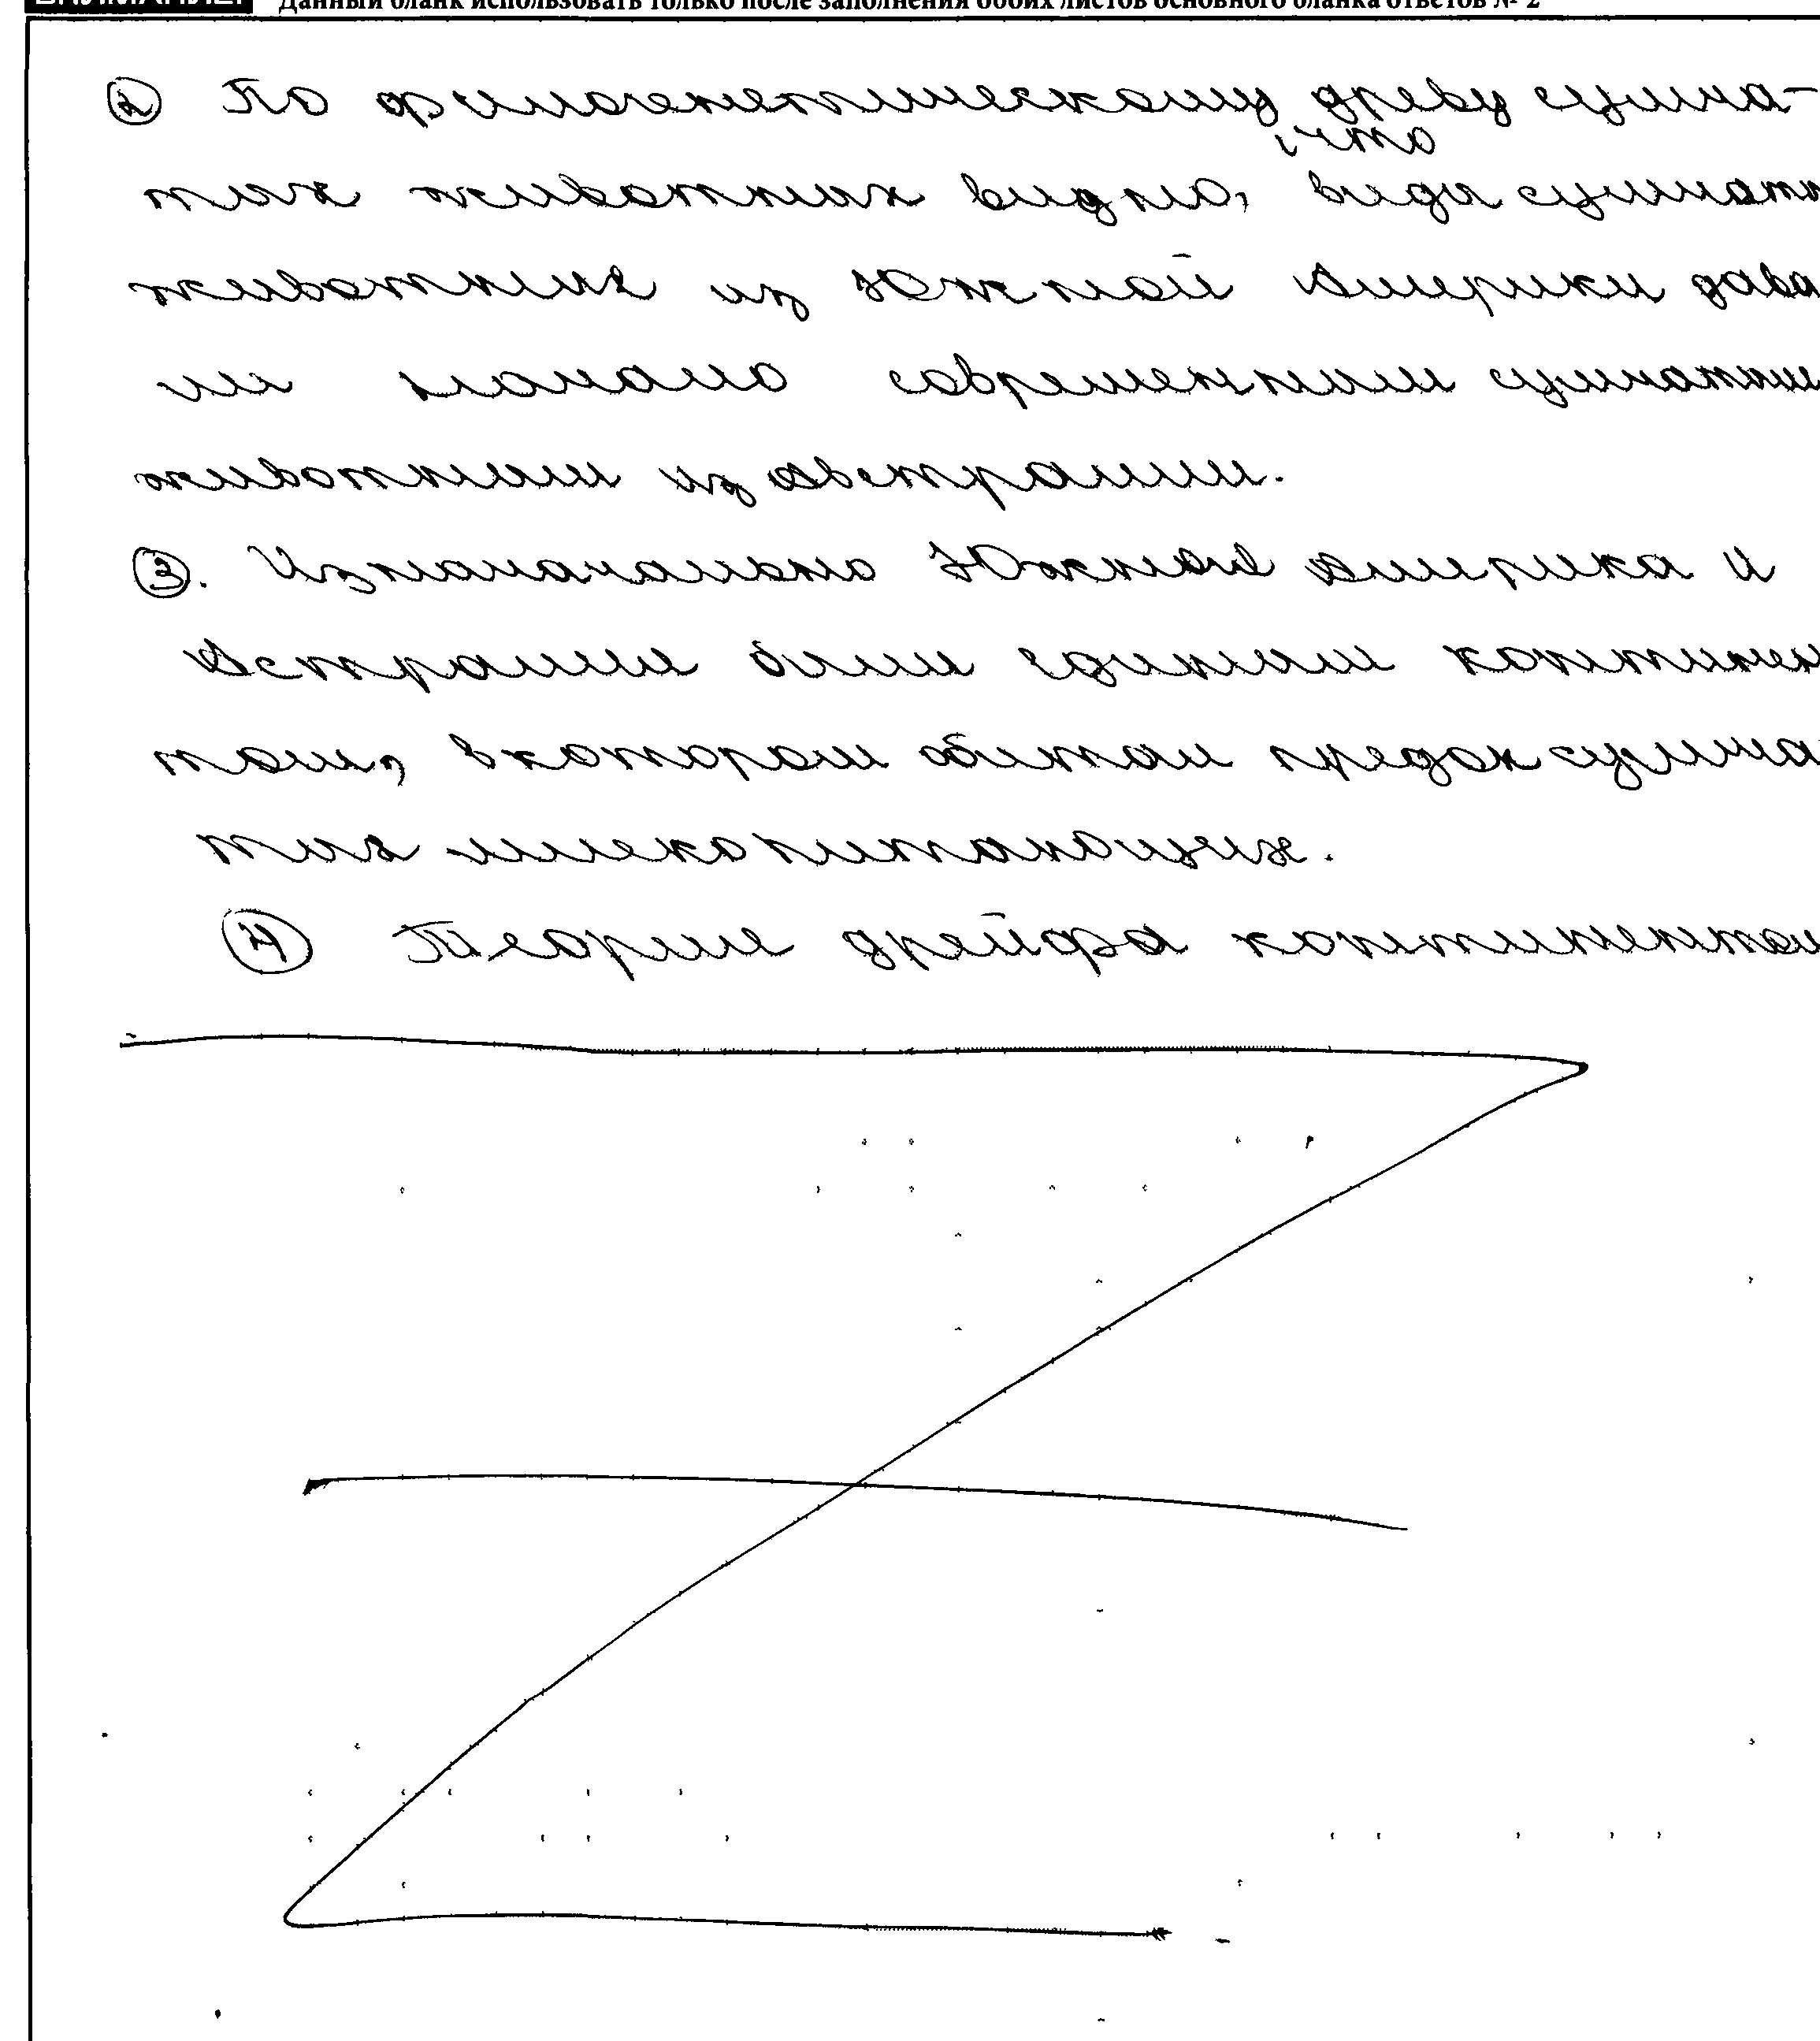 Данный бланк использовать только после заполнения обоих листов основного бланка ответов № 2
② По филогенетическому древу сумча-
тых животных видно,
, что
виды сумчат
животных из Южной Америки дава
ли начало современным сумчатым
животным из австралии.
③. Изначанально Южная америка и
Астралия были единым континен
том, в котором обитал предок сумча
тых млекопитающих.
④ Теория дрейфа континентов